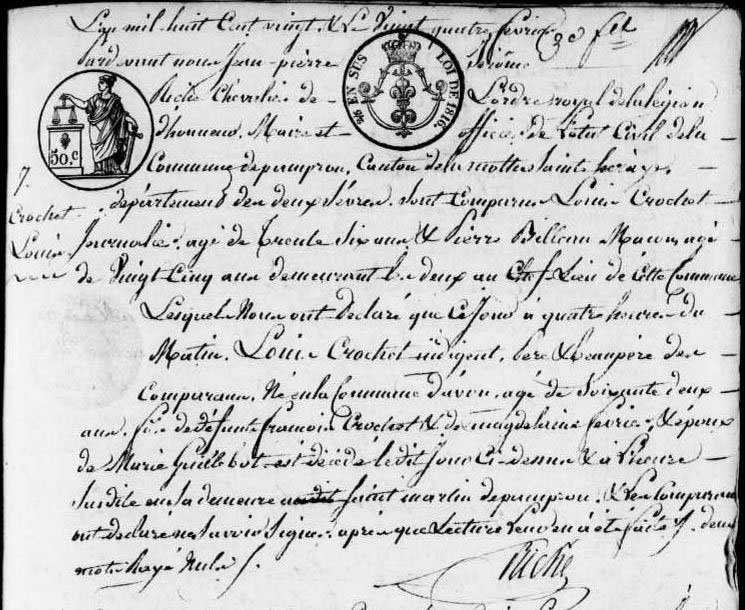 L'an mil huit Cent vingt, & Le Vingt quatre fevrier
Pardevant nous Jean-pierre Jérôme
EN SUS LOI DE 1816.
Riché Chevalier de L'ordre royal delalégion
50. c
dhonneur, Maire et officier de L'état Civil dela
Commune depamprou, Canton delamothe Saint heraye,
7.
département des deux Sèvres. sont Comparus Louis Crochet
Crochet
Louis
Journalier, agé de trente six ans & Pierre Billeau Maçon, agé
de Vingt Cinq ans demeurant les deux au Chef Lieu de Cette Commune
Lesquels Nous ont declaré que Ce Jour à quatre heures du
Matin, Louis Crochet indigent, pere & beaupère des
Comparans, Né en la Commune d'avon, agé de Soixante deux
ans, fils de défunts françois Crochet & de magdelaine fevrier, & époux
de Marie Guillebot est décédé ledit Jour Ci-dessus & a L'heure
Susdite en sa demeure Saint martin depamprou, & Les Comparans
ont declaré ne Savoir Signer, après que Lecture Leur en à été faite. deux
mots Rayé Nuls.
Riché